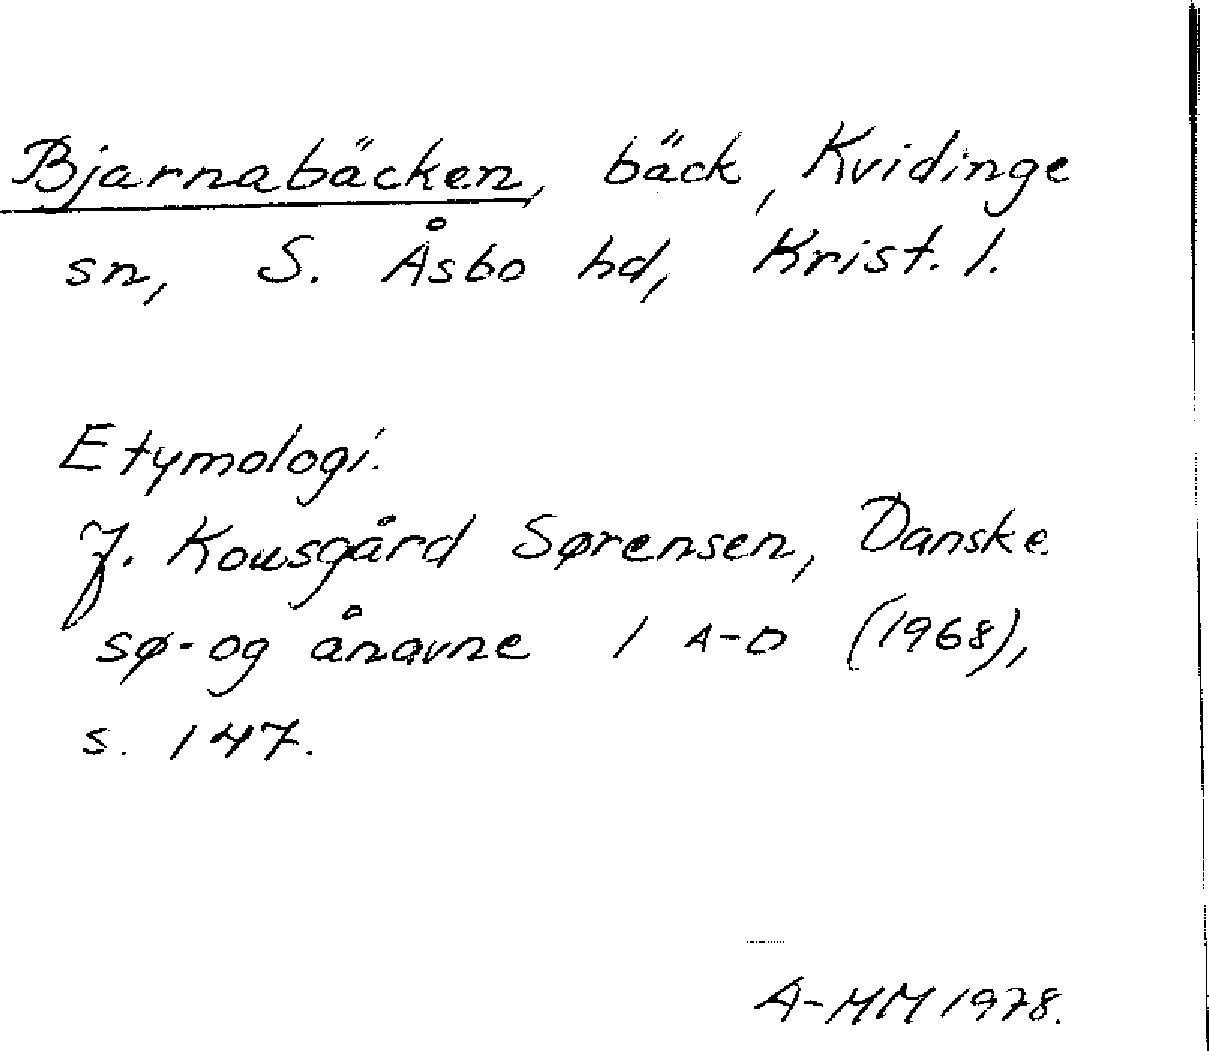 Bjarnabäcken, bäck, Kvidinge
sn, S. Åsbo hd, Krist. l.
Etymologi.
J. Kousgård Sørensen, Danske
sø- og ånavne 1 A-D (1968),
s. 147.
A-MM 1978.